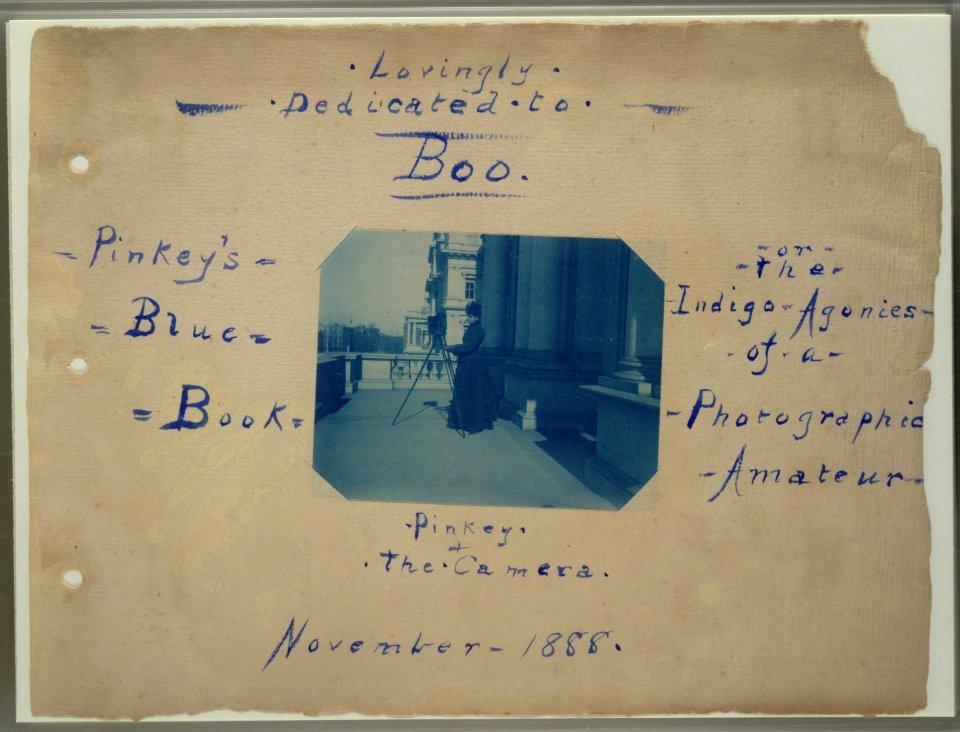 · Lovingly ·
· Dedicated · to ·
Boo.
- Pinkey's =
= Blue =
= Book =
- or -
- the -
- Indigo - Agonies -
- of - a -
- Photographic
- Amateur -
· Pinkey ·
+
· the · Camera .
November - 1888.